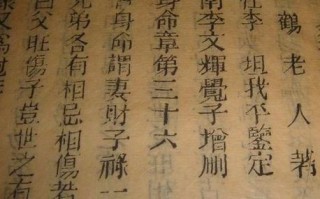 鶴老人著
李坦我平鑒定
南李文輝覺子增刪
身命章第三十六
身命謂妻財子祿一
兄弟各有相忌相傷若
父旺傷子豈世之有